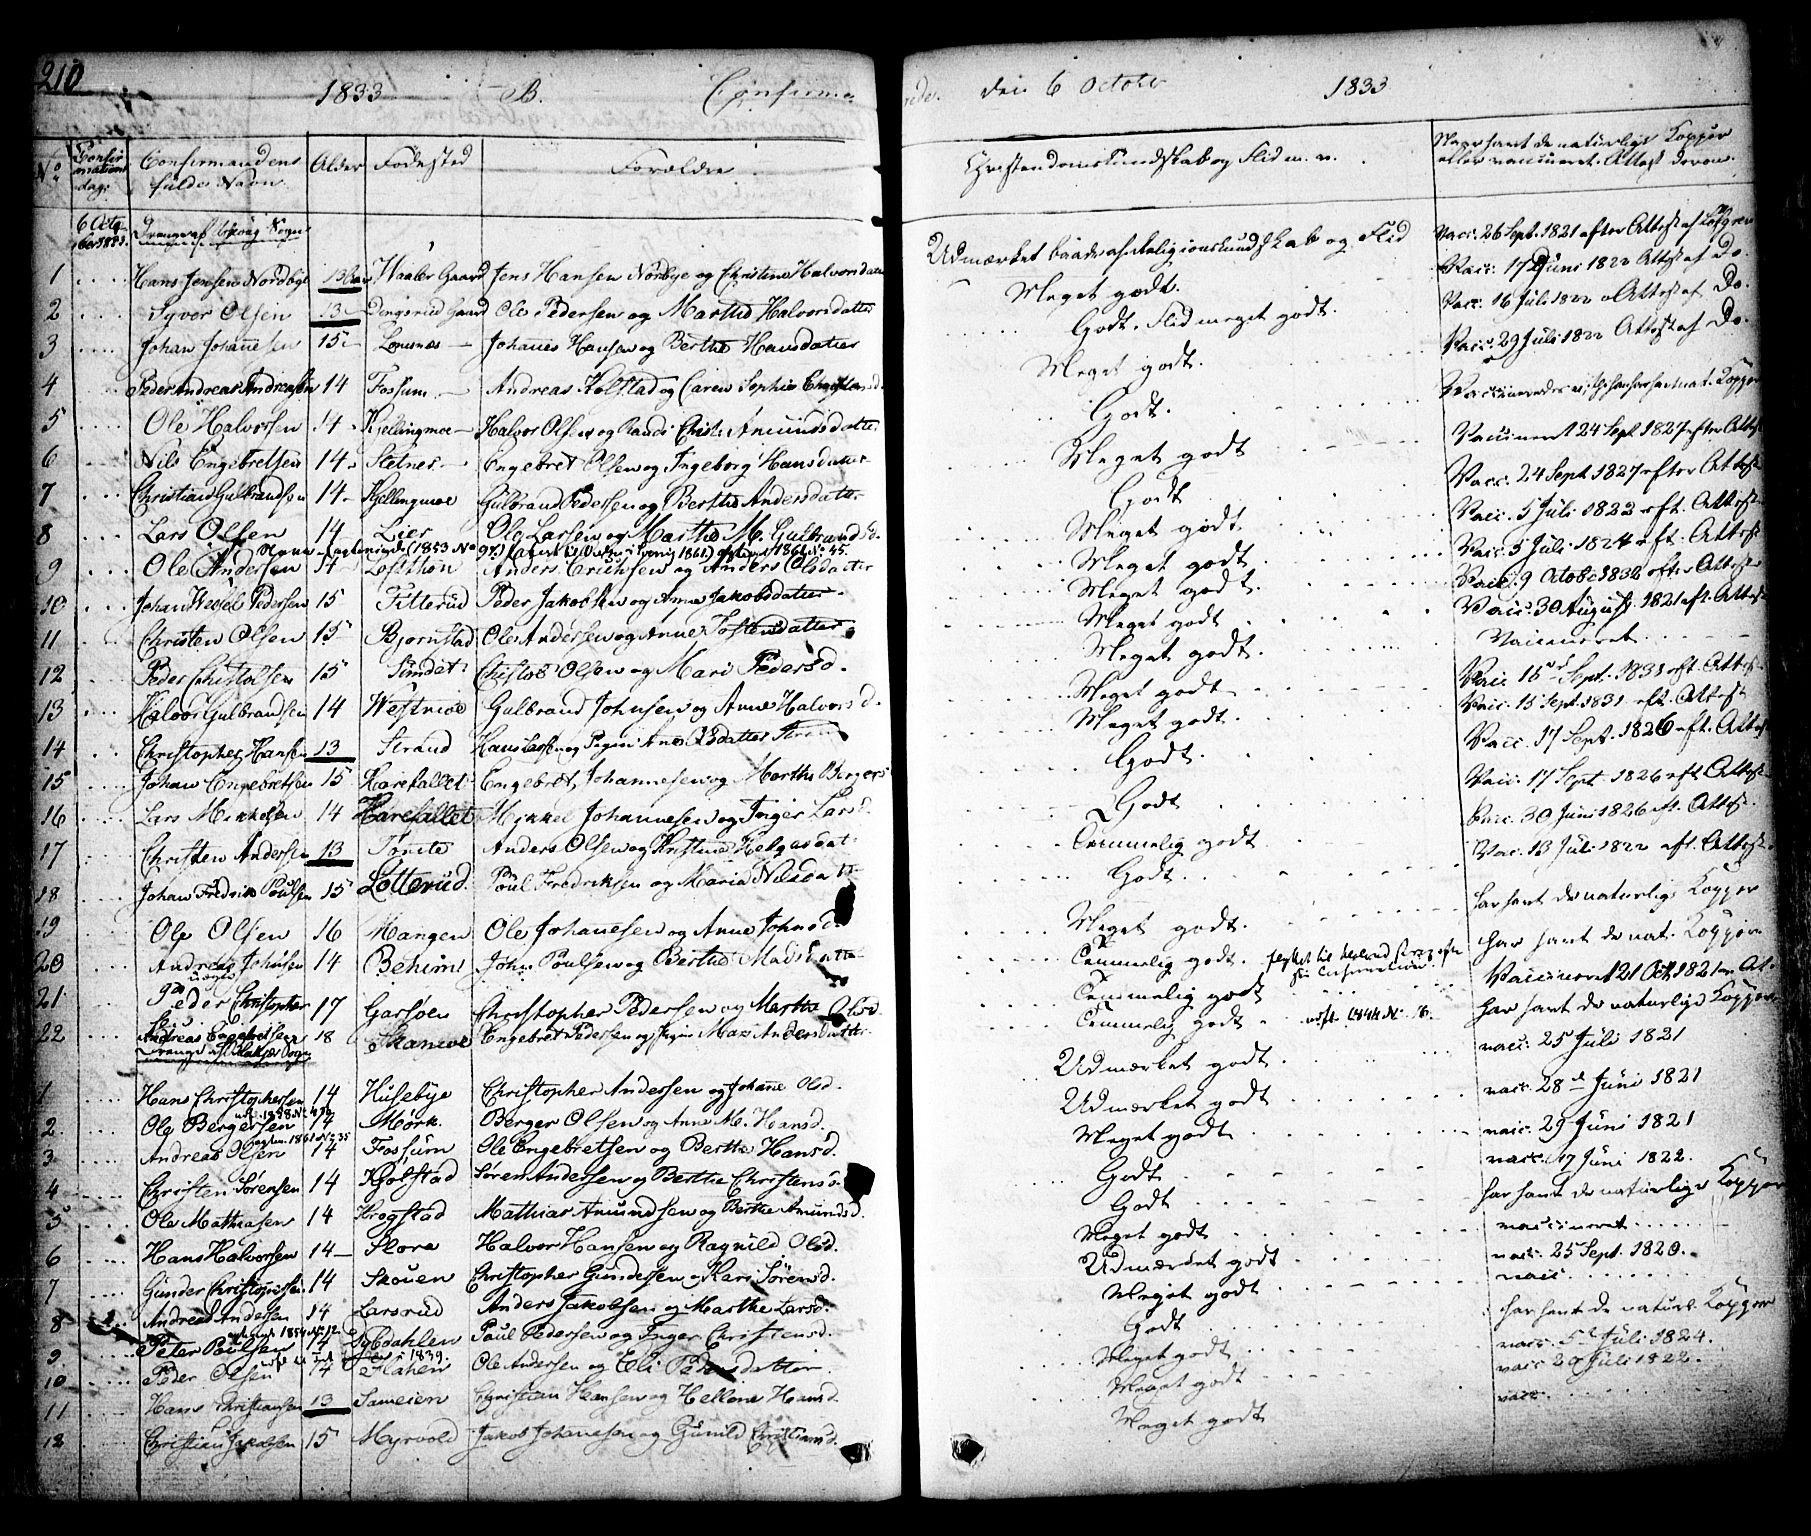 210
1833 B. Confirme-
rede. den 6 October 1833
No Confirmations dag. Confirmandens fulde Navn. Alder Fødested Forældre. Christendomskundskab og Flid m. v. Naar havt de naturlige Kopper eller vaccineret. Attest derom.
6 October 1833. Drenge af Sogn
1 Hans Jensen Nordbye 13 Waaler Gaard Jens Hansen Nordbye og Christine Halvorsdatter Udmærket baade af Religionskundskab og Flid Vacc. 26 Sept. 1821 efter Attest af
2 Syver Olsen 13 Dingsrud Gaard Ole Pedersen og Marthe Halvorsdatter Meget godt. Vacc. 17 Juni 1822 Attest af Do.
3 Johan Johannesen 15 Johanes Hansen og Berthe Hansdatter Godt. Flid meget godt. Vacc. 16 Juli 1822 Attest af Do.
4 Peder Andreas Andreasen 14 Fossum Andreas Kolstad og Caren Sophie Meget godt. Vacc. 29 Juli 1822 Attest af Do.
5 Ole Halvorsen 14 Kjellingmoe Halvor Olsen og Randi Christ. Amundsdatter Godt.
6 Nils Engebretsen 14 Stetnes Engebret Olsen og Ingeborg Hansdatter Meget godt Vaccineret 24 Sept 1827 efter Attest
7 Christian Gulbrandsen 14 Kjellingmoe Gulbrand Pedersen og Berthe Andersdatter Godt Vacc. 24 Sept 1827 efter Attest
8 Lars Olsen 14 Lier Ole Larsen og Marthe M. Gulbrandsd. Meget godt. Vacc. 5 Juli 1822 eft. Attest
9 Ole Andersen 14 Lofthon Anders Erichsen og Anders Olsdatter Meget godt. Vacc. 5 Juli 1824 eft. Attest
10 Johan Wessel Pedersen 15 Titterud Peder Jakobsen og Anne Jakobsdatter Meget godt. Vacc. 9 October 1832 eft Attest
11 Christen Olsen 15 Bjørnstad Ole Andersen og Anne Tostensdatter Meget godt Vacc 30 August 1821 eft. Attest
12 Peder Christofsen 15 Sundet Christof Olsen og Mari Pedersd. Meget godt. Vaccineret
13 Halvor Gulbrandsen 14 Westmoe Gulbrand Johnsen og Anne Halvorsd. Meget godt Vacc. 15 Sept. 1831 eft. Attest
14 Christopher Hansen 13 Strand Hans Larsen og Pigen Ane Olsdatter Strand Meget godt. Vacc. 15 Sept. 1831 eft. Attest
15 Johan Engebretsen 15 Harefallet Engebret Johannesen og Marthe Bergers Godt. Vacc. 17 Sept. 1826 eft. Attest
16 Lars Mikkelsen 14 Harefallet Mikkel Johannesen og Inger Larsd. Godt Vacc. 17 Sept 1826 eft Attest
17 Christen Andersen 13 Anders Olsen og Kirstine Helgesdat. Temmelig godt Vacc. 30 Juni 1826 eft. Attest.
18 Johan Fredrik Poulsen 15 Lotterud. Poul Fredriksen og Maria Nilsdatt. Godt. Vac. 13 Juli 1822 eft. Attest
19 Ole Olsen 16 Mangen Ole Johanesen og Anne Johnsd. Meget godt. har havt de naturlige Kopper
20 Andreas Johnsen 14 John Poulsen og Berthe Madsdatter Temmelig godt. har havt de nat. Kopper
21 Peder Christopher 17 Garsøen Christopher Pedersen og Marthe Olsd. Temmelig godt Vaccineret 21 Oct 1821 en At.
22 Andreas Engebretsen 18 Engebret Pedersen og Pigen Mari Andersdatter Temmelig godt har havt de naturlige Kopper
Drenge af Sogn
1 Hans Christophersen 14 Husebye Christopher Andersen og Johane Olsd. Udmærket godt vacc. 25 Juli 1821
2. Ole Bergersen 14 Mørk. Berger Olsen og Anne M. Hansd. Udmærket godt vacc. 28 Juni 1821
3. Andreas Olsen 14 Fossum Ole Engebretsen og Berthe Hansd. Meget godt vacc. 29 Juni 1821
4 Christen Sørensen 14 Kjølstad Søren Andersen og Berthe Christensd. Godt vacc. 17 Juni 1822.
5 Ole Mathiasen 14 Krogstad Mathias Amundsen og Berthe Amundsd. Godt har havt de naturlige Kopper
6 Hans Halvorsen 14 Skora Halvor Hansen og Ragnild Olsd. Meget godt vaccineret
7 Gunder Christophersen 14 Skouen Christopher Gundersen og Kari Sørensd. Udmærket godt vacc. 25 Sept. 1820.
8 Andreas Andersen 14 Larsrud Anders Jakobsen og Marthe Larsd. Meget godt vacc.
9 Peter Poulsen 14 Dybdahlen Poul Pedersen og Inger Christensd. Godt har havt de naturl. Kopper
10 Peder Olsen 14 Ole Andersen og Eli Pedersdatter Meget godt vacc. 5 Juli 1824.
11 Hans Christiansen 13 Sameien Christian Hansen og Hellene Hansd. Meget godt vacc 29 Juli 1822.
12 Christian Jakobsen 15 Myrvold Jakob Johanesen og Gunild Christiansd. Meget godt vacc.